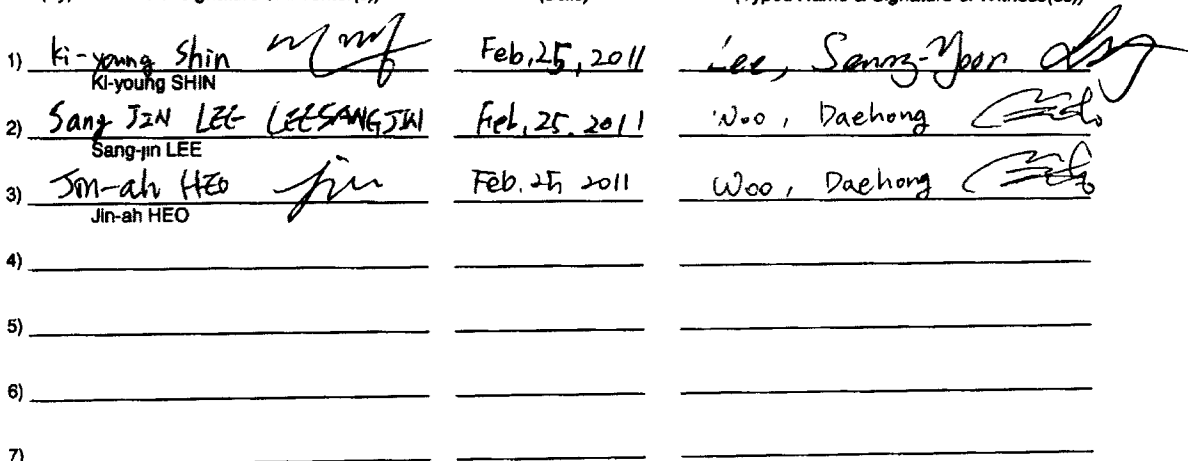 1) Ki-young Shin Feb, 25, 2011 Lee, Sang-Yoon
Ki-young SHIN
2) Sang JIN LEE LEESANGJIN Feb, 25. 2011 Woo, Daehong
Sang-jin LEE
3) Jin-ah HEO jin Feb. 25 2011 Woo, Daehong
Jin-ah HEO
4)
5)
6)
7)